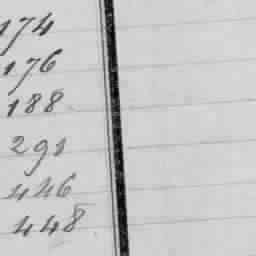 174
176
188
291
446
448